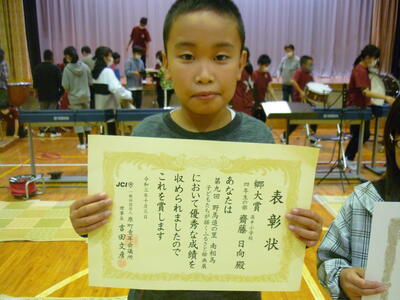 表彰状
郷大賞
四年生の部
高平小学校
齋藤 日向 殿
あなたは
第九回 野馬追の里 南相馬
子どもたちが描くふるさと絵画展
において優秀な成績を
収められましたので
これを賞します
令和三年十月三日
JCI
一般社団法人 原町青年会議所
理事長 吉田文彦